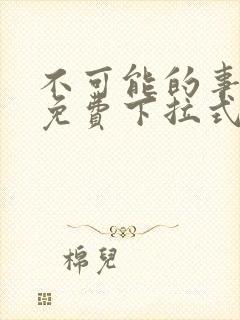 不可能的事
免費下拉式
棉兒